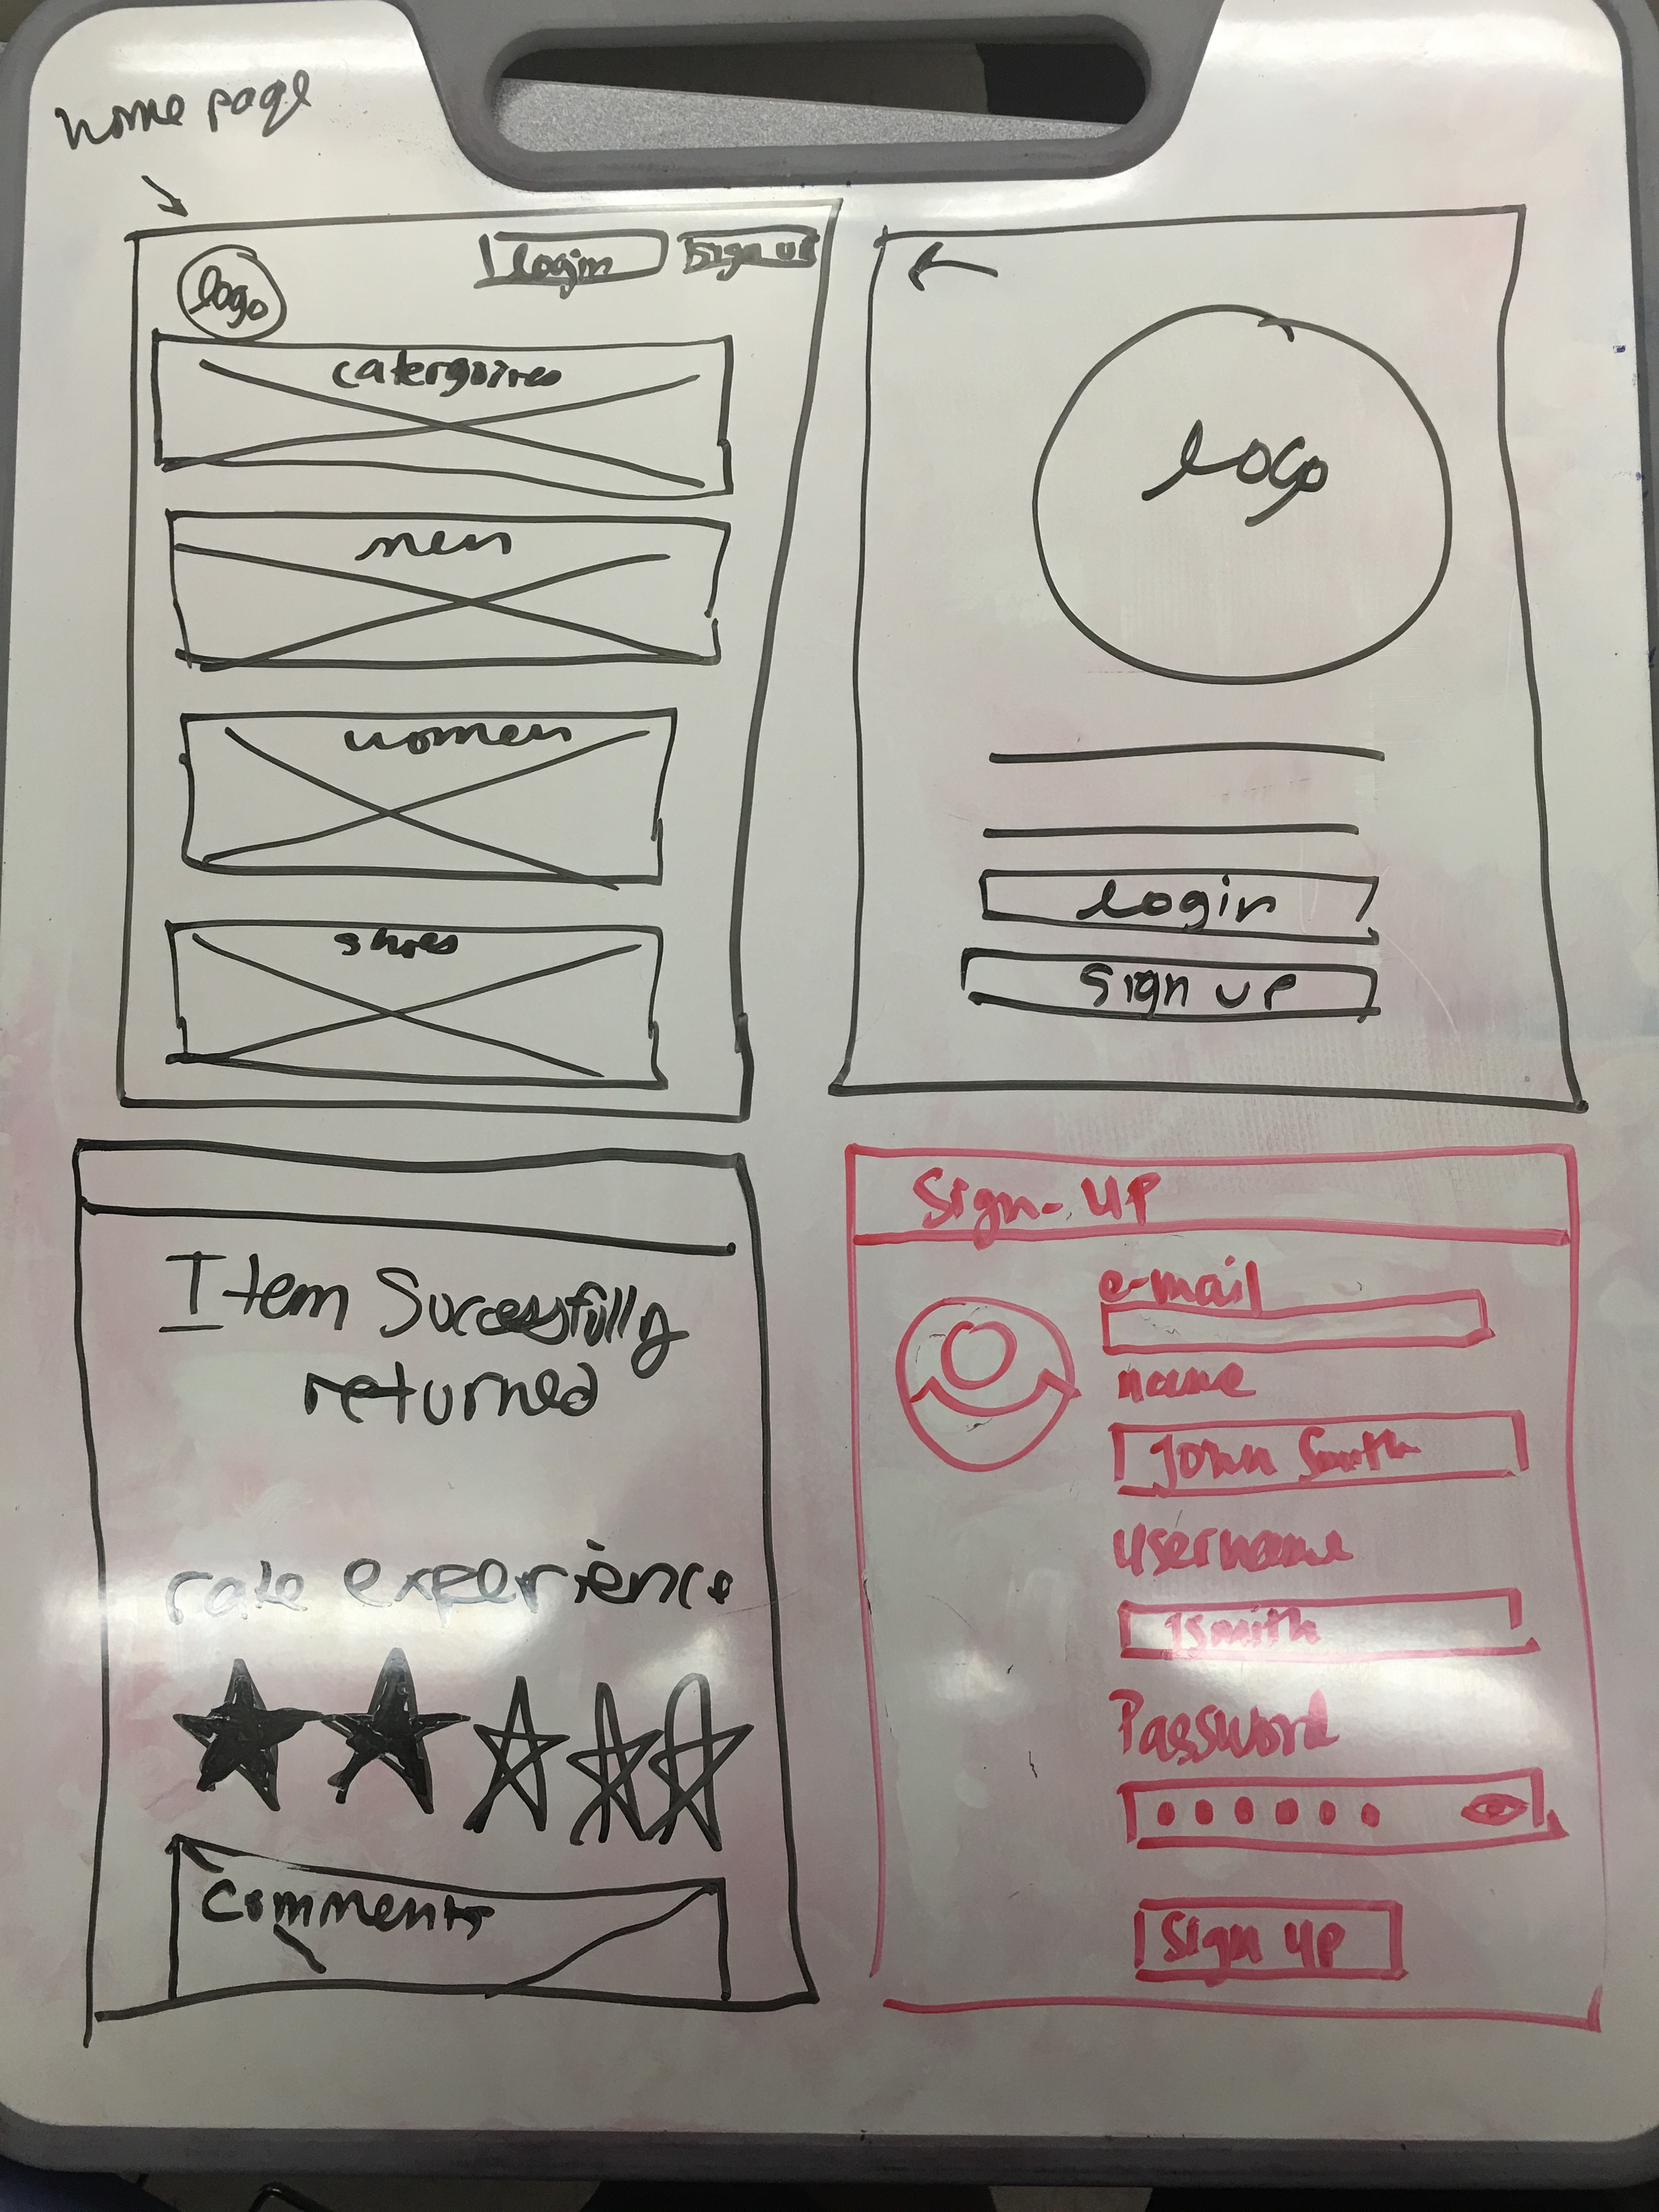 home page
login
sign up
logo
catergoires
men
women
shoes
logo
login
sign up
Item Successfully
returned
rate experience
Comments
Sign-UP
e-mail
name
John Smith
username
Jsmith
Password
Sign up